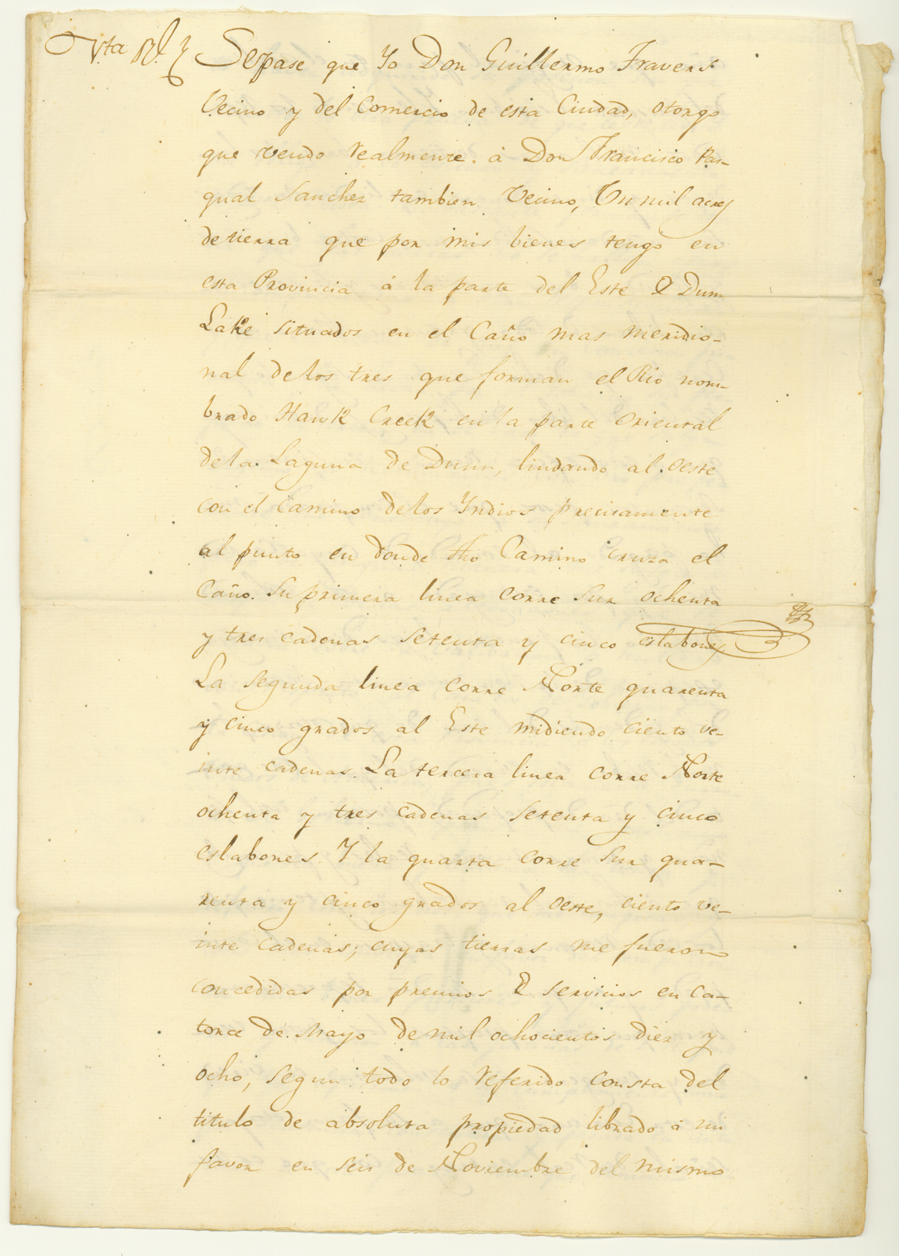 Vta Rl
Sepase que Yo Don Guillermo Travers
Vecino y del Comercio de esta Ciudad, otorgo
que vendo realmente á Don Francisco Pas-
qual Sanchez tambien Vecino, Un mil acres
de tierra que por mis bienes tengo en
esta Provincia á la parte del Este de Dunn
Lake situados en el Caño mas meridio-
nal de los tres que forman el Rio nom-
brado Hawk Creek en la parte oriental
de la Laguna de Dunn, lindando al oeste
con el Camino de los Yndios precisamente
al punto en donde dho Camino cruza el
Caño. Su primera linea corre Sur ochenta
y tres cadenas setenta y cinco eslabones
La segunda linea corre Norte quarenta
y cinco grados al Este midiendo ciento ve-
inte cadenas. La tercera linea corre Norte
ochenta y tres cadenas setenta y cinco
eslabones Y la quarta corre Sur qua-
renta y cinco grados al oeste, ciento ve-
inte cadenas; cuyas tierras me fueron
concedidas por premios de servicios en ca-
torce de Mayo de mil ochocientos diez y
ocho, segun todo lo referido consta del
titulo de absoluta propiedad librado á mi
favor en seis de Noviembre del mismo